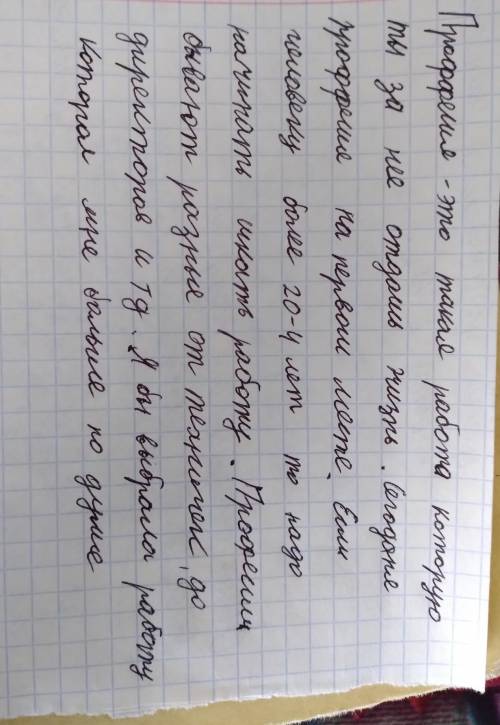 Проффесия - это такая работа которую
ты за нее отдашь жизнь. Сегодня
проффесия на первом месте. Если
человеку более 20-4 лет то надо
начинать искать работу. Професии
бывают разные от техничек, до
директоров и тд. Я бы выбрала работу
которая мне больше по душе